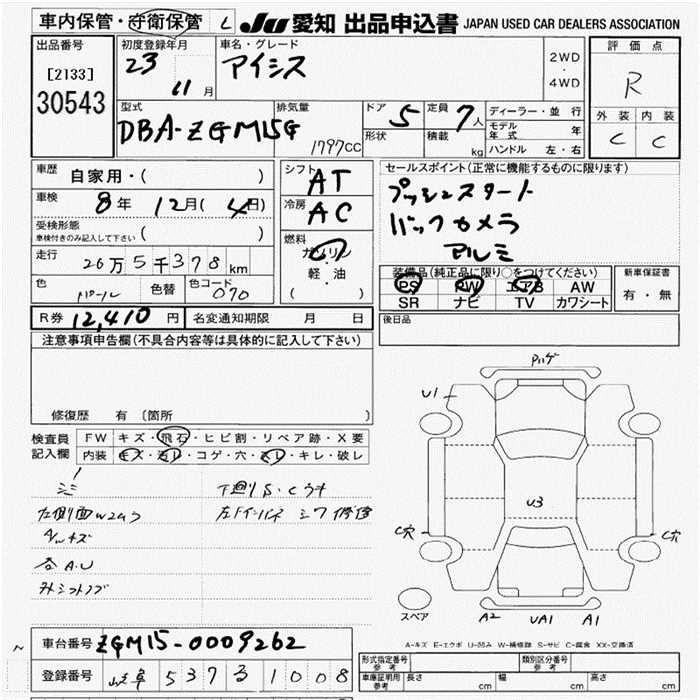 車内保管・守衛保管 L JU 愛知 出品申込書 JAPAN USED CAR DEALERS ASSOCIATION
出品番号
[2133]
30543
初度登録年月
23
11 月
車名・グレード
アイシス
2WD
・
4WD
評価点
R
外装 内装
C C
型式
DBA-ZGM15G
排気量
1797CC
ドア 5
形状
定員 7人
積載 kg
ディーラー・並行
モデル年式 年
ハンドル 左・右
車歴 自家用・( )
車検 8年 12月(4日)
受検形態
車検付きのみ記入して下さい ( )
走行 26万5千378km
色 パール 色替 色コード 070
シフト AT
冷房 AC
燃料
ガソリン
・
軽・油
( )
セールスポイント(正常に機能するものに限ります)
プッシュスタート
バックカメラ
アルミ
装備品(純正品に限り○をつけてください)
PS PW エアB AW
SR ナビ TV カワシート
新車保証書
有・無
R券 12,410円 名変通知期限 月 日
後日品
注意事項申告欄(不具合内容等は具体的に記入して下さい)
修復歴 有〔箇所 〕
検査員記入欄
FW キズ・飛石・ヒビ割・リペア跡・X要
内装 キズ・汚レ・コゲ・穴・スレ・キレ・破レ
下廻りS・Cウキ
左側面W2ムラ
シワ 修復
キズ
各A.U
U1
U3
C穴
C穴
スペア
A2 UA1 A1
A-キズ E-エクボ U-凹み W-補修跡 S-サビ C-腐食 XX-交換済
車台番号 ZGM15-0009262
登録番号 岐阜 537 る 1008
形式指定番号
参考
類別区分番号
参考
車庫証明用
参考
長さ cm 幅 cm 高さ cm